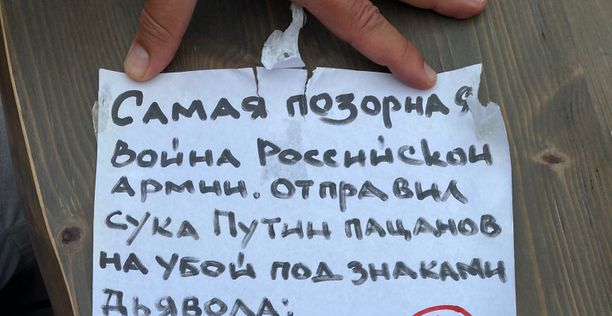 Самая позорная
война Российской
армии. отправил
сука Путин пацанов
на убой под знаками
дьявола: